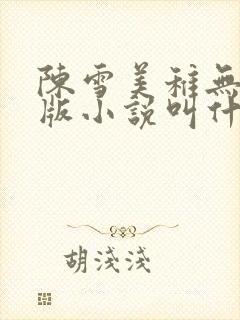 陳雪美稚無
版小說叫什
胡淺淺